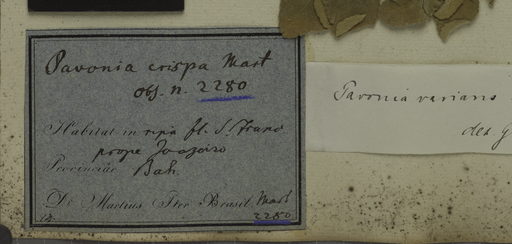 Pavonia crispa Mart
obs. n. 2280
Habitat in ripa fl. S. Franc
prope Joazeiro
Provinciae Bah.
Dr. Martius Iter Brasil. Mart
2280
Pavonia varians